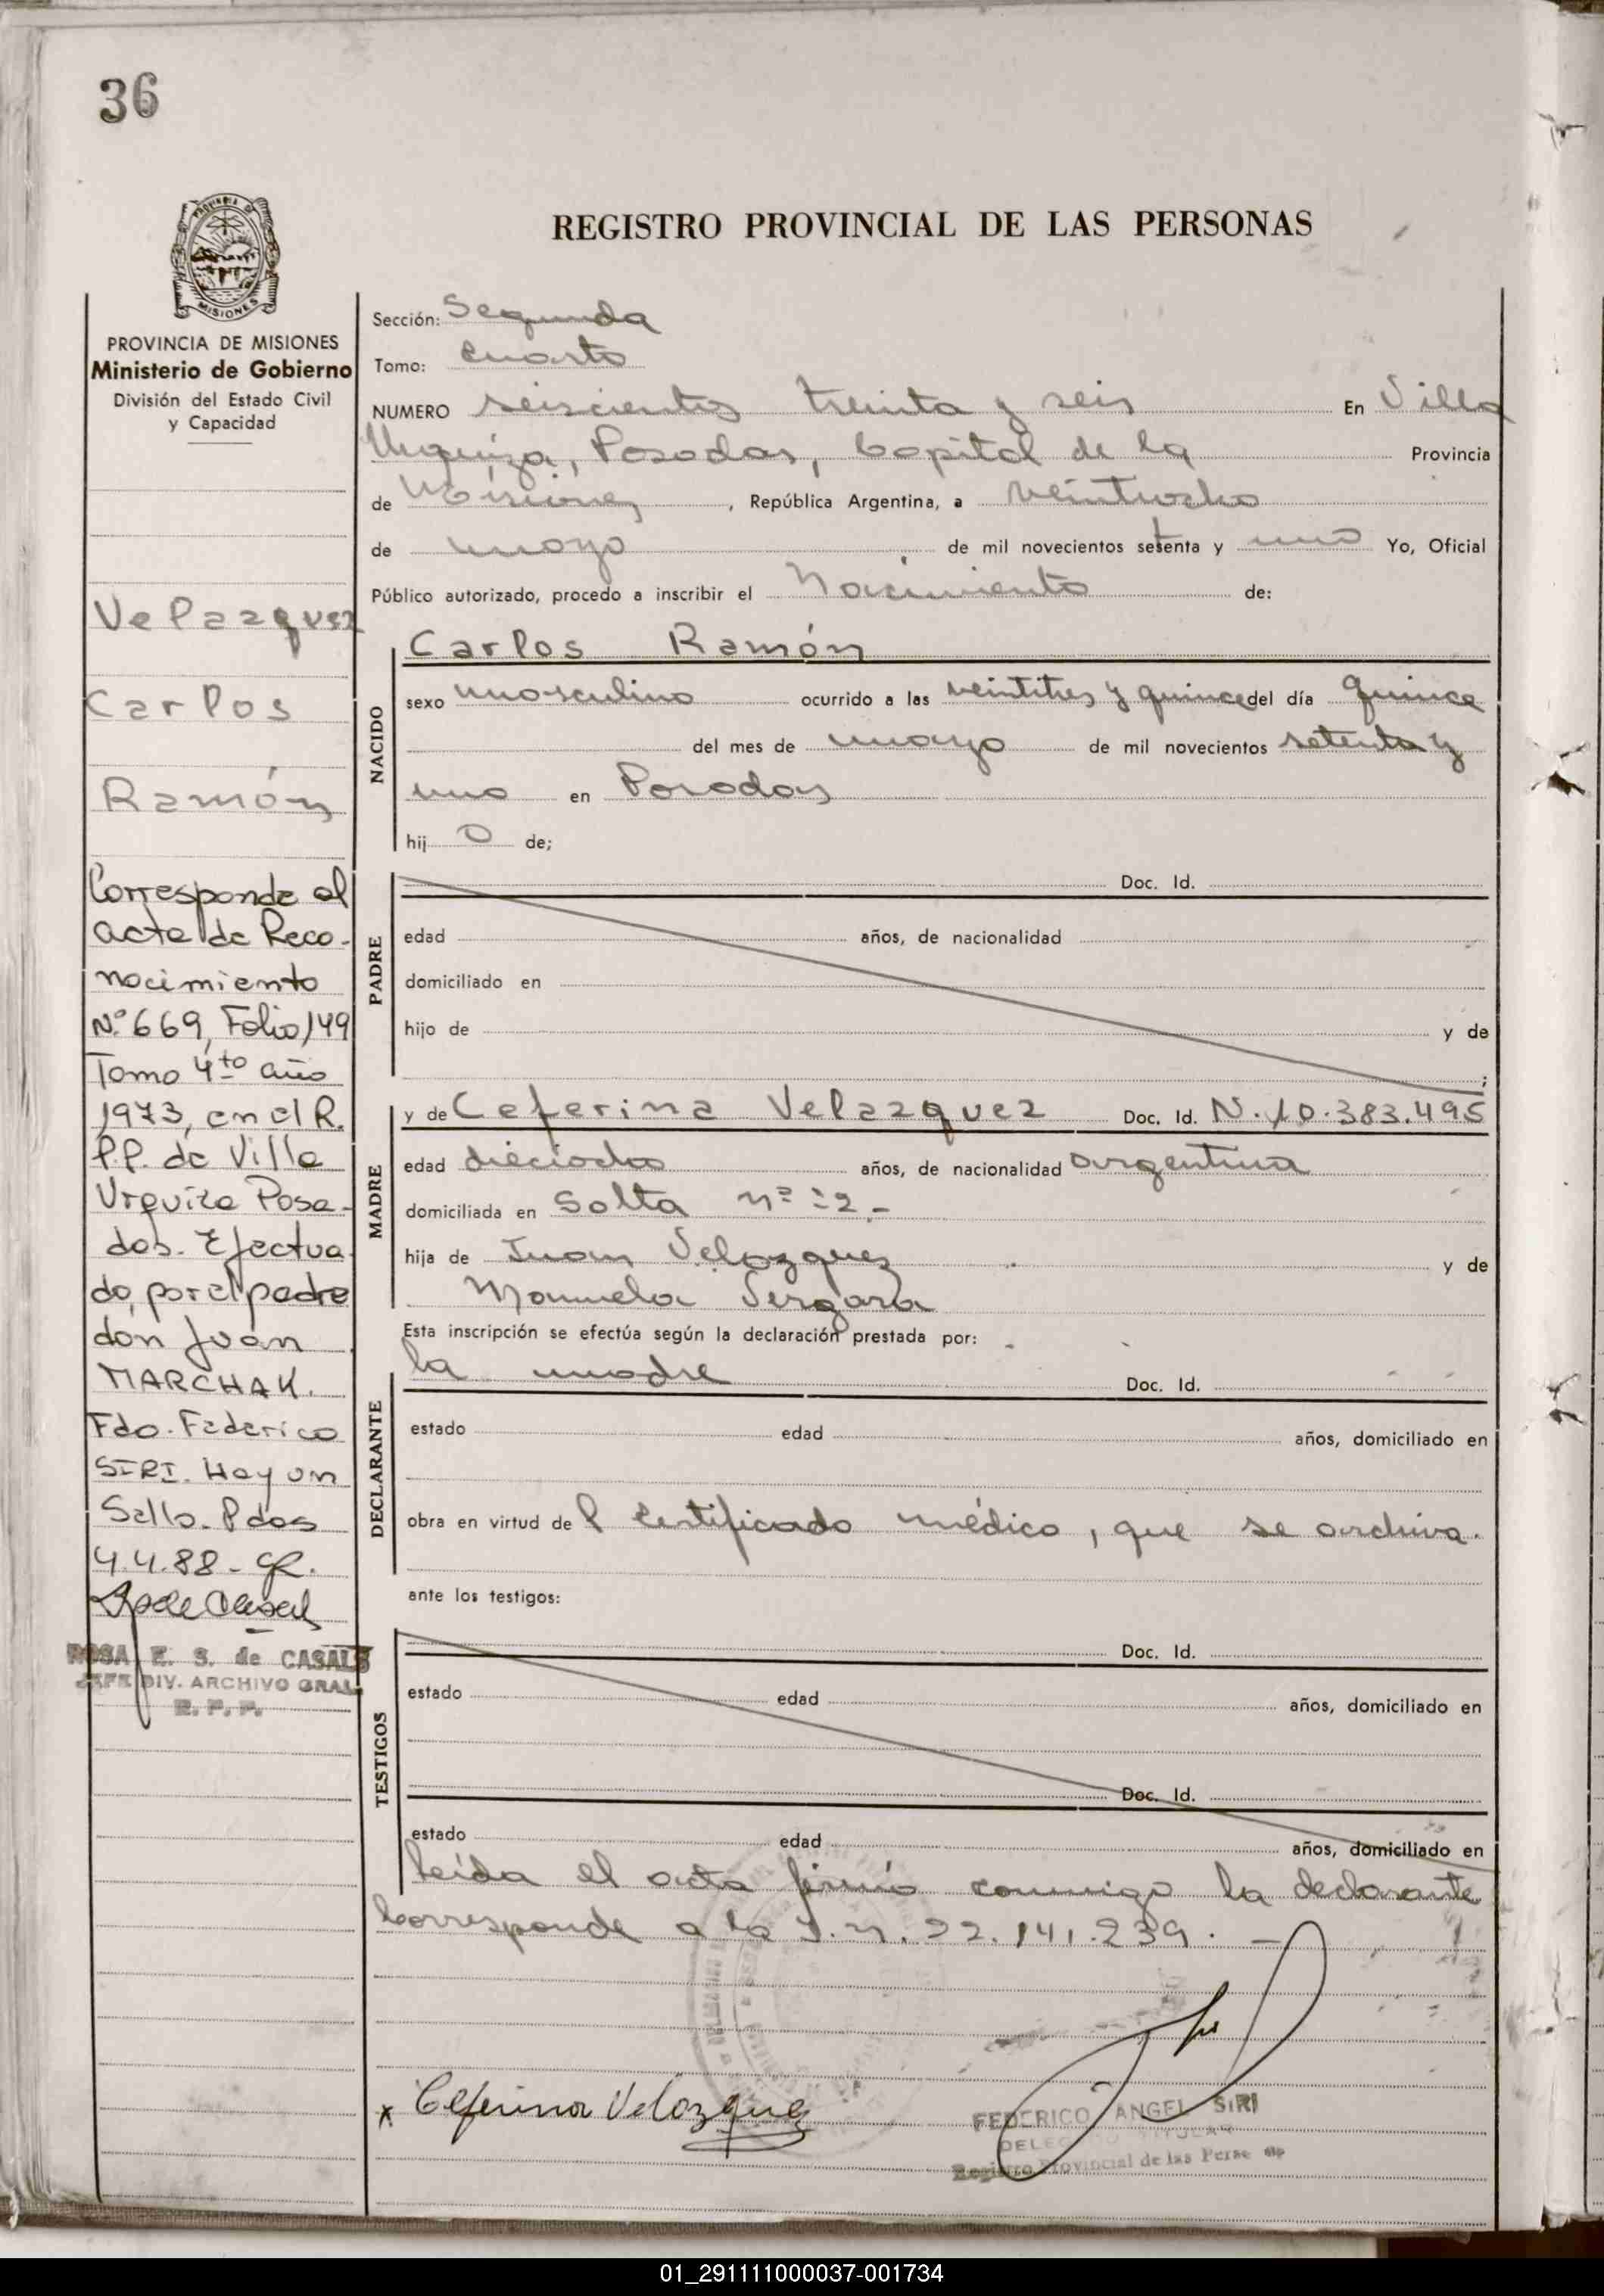 36
PROVINCIA DE MISIONES
Ministerio de Gobierno
División del Estado Civil
y Capacidad
Velazquez
Carlos
Ramón
Corresponde al
acta de Reco-
nocimiento
Nº 669, Folio 149
Tomo 4to año
1973, en el R.
P.P. de Villa
Urquiza Posa-
das. Efectua
do, por el padre
don Juan
MARCHAK.
Fdo. Federico
SIRI. Hay un
Sello. Pdas
4.4.88 -
ROSA E. S. de CASALS
JEFE DIV. ARCHIVO GRAL.
R. P. P.
REGISTRO PROVINCIAL DE LAS PERSONAS
Sección: Segunda
Tomo: Cuarto
NUMERO seiscientos treinta y seis En Villa
Urquiza, Posadas, Capital de la Provincia
de Misiones, República Argentina, a veintiocho
de mayo de mil novecientos setenta y uno Yo, Oficial
Público autorizado, procedo a inscribir el Nacimiento de:
NACIDO
Carlos Ramón
sexo masculino ocurrido a las veintitres y quince del día quince
del mes de mayo de mil novecientos setenta y
uno en Posadas
hij o de;
PADRE
Doc. Id.
edad años, de nacionalidad
domiciliado en
hijo de y de
;
MADRE
y de Ceferina Velazquez Doc. Id. N. 10.383.495
edad dieciocho años, de nacionalidad argentina
domiciliada en Salta nº 2.-
hija de Juan Velazquez y de
Manuela Vergara
Esta inscripción se efectúa según la declaración prestada por:
DECLARANTE
la madre Doc. Id.
estado edad años, domiciliado en
obra en virtud de l certificado médico, que se archiva.
ante los testigos:
TESTIGOS
Doc. Id.
estado edad años, domiciliado en
Doc. Id.
estado edad años, domiciliado en
leída el acta firmó conmigo la declarante
Corresponde a la I. n. 22.141.239. -
x Ceferina Velazquez
FEDERICO ANGEL SIRI
DELEGADO TITULAR
Registro Provincial de las Personas
01_291111000037-001734